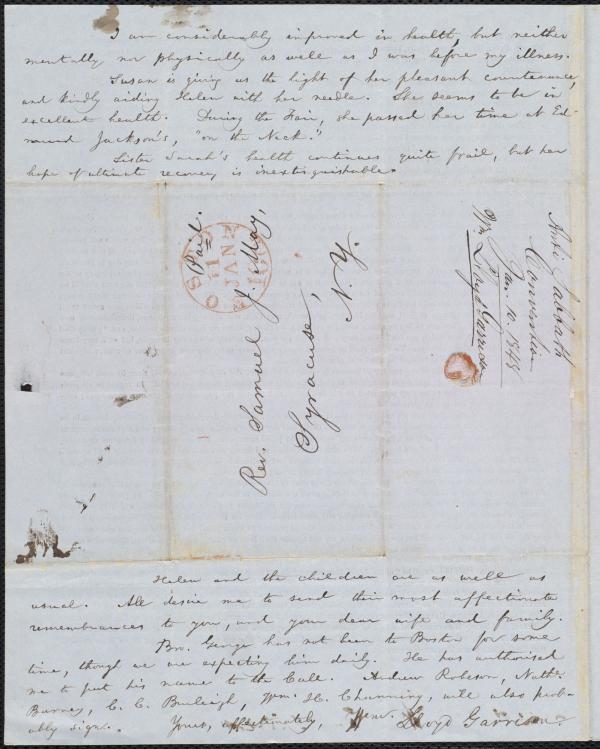 I am considerably improved in health, but neither
mentally nor physically as well as I was before my illness.
Susan is giving us the light of her pleasant countenance,
and kindly aiding Helen with her needle. She seems to be in
excellent health. During the Fair, she passed her time at Ed-
mund Jackson's, "on the Neck."
Sister Sarah's health continues quite frail, but her
hope of ultimate recovery is inextinguishable.
Paid.
11
JAN
Rev. Samuel J. May,
Syracuse,
N. Y.
Anti Sabbath
Convention
Jan. 10. 1848
Wm. Lloyd Garrison
Helen and the children are as well as
usual. All desire me to send their most affectionate
remembrances to you, and your dear wife and family.
Bro. George has not been to Boston for some
time, though we are expecting him daily. He has authorised
me to put his name to the Call. Andrew Robeson, Nath.
Barney, C. C. Burleigh, Wm. H. Channing, will also prob-
ably sign. Yours, affectionately, Wm. Lloyd Garrison